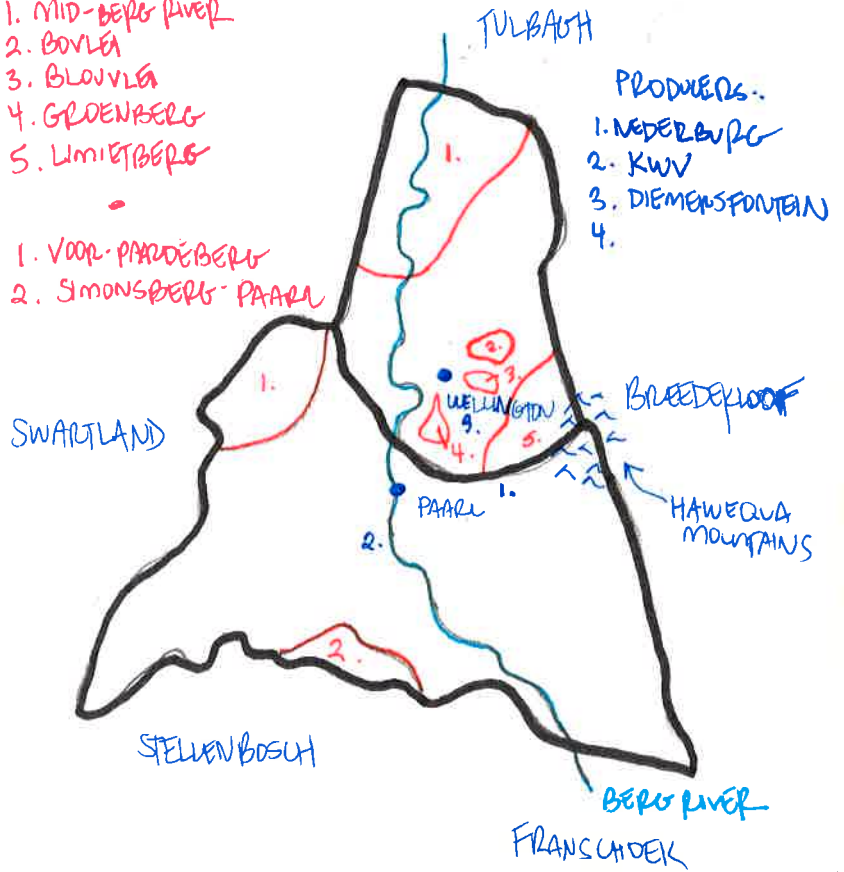 1. MID-BERG RIVER
2. BOVLEI
3. BLOUVLEI
4. GROENBERG
5. LIMIETBERG
1. VOOR-PAARDEBERG
2. SIMONSBERG-PAARL
TULBAGH
PRODUCERS..
1. NEDERBURG
2. KWV
3. DIEMERSFONTEIN
4.
1.
2.
3.
WELLINGTON
3.
4.
5.
BREEDEKLOOF
1.
SWARTLAND
PAARL
1.
HAWEQUA
MOUNTAINS
2.
2.
STELLENBOSCH
BERG RIVER
FRANSCHOEK